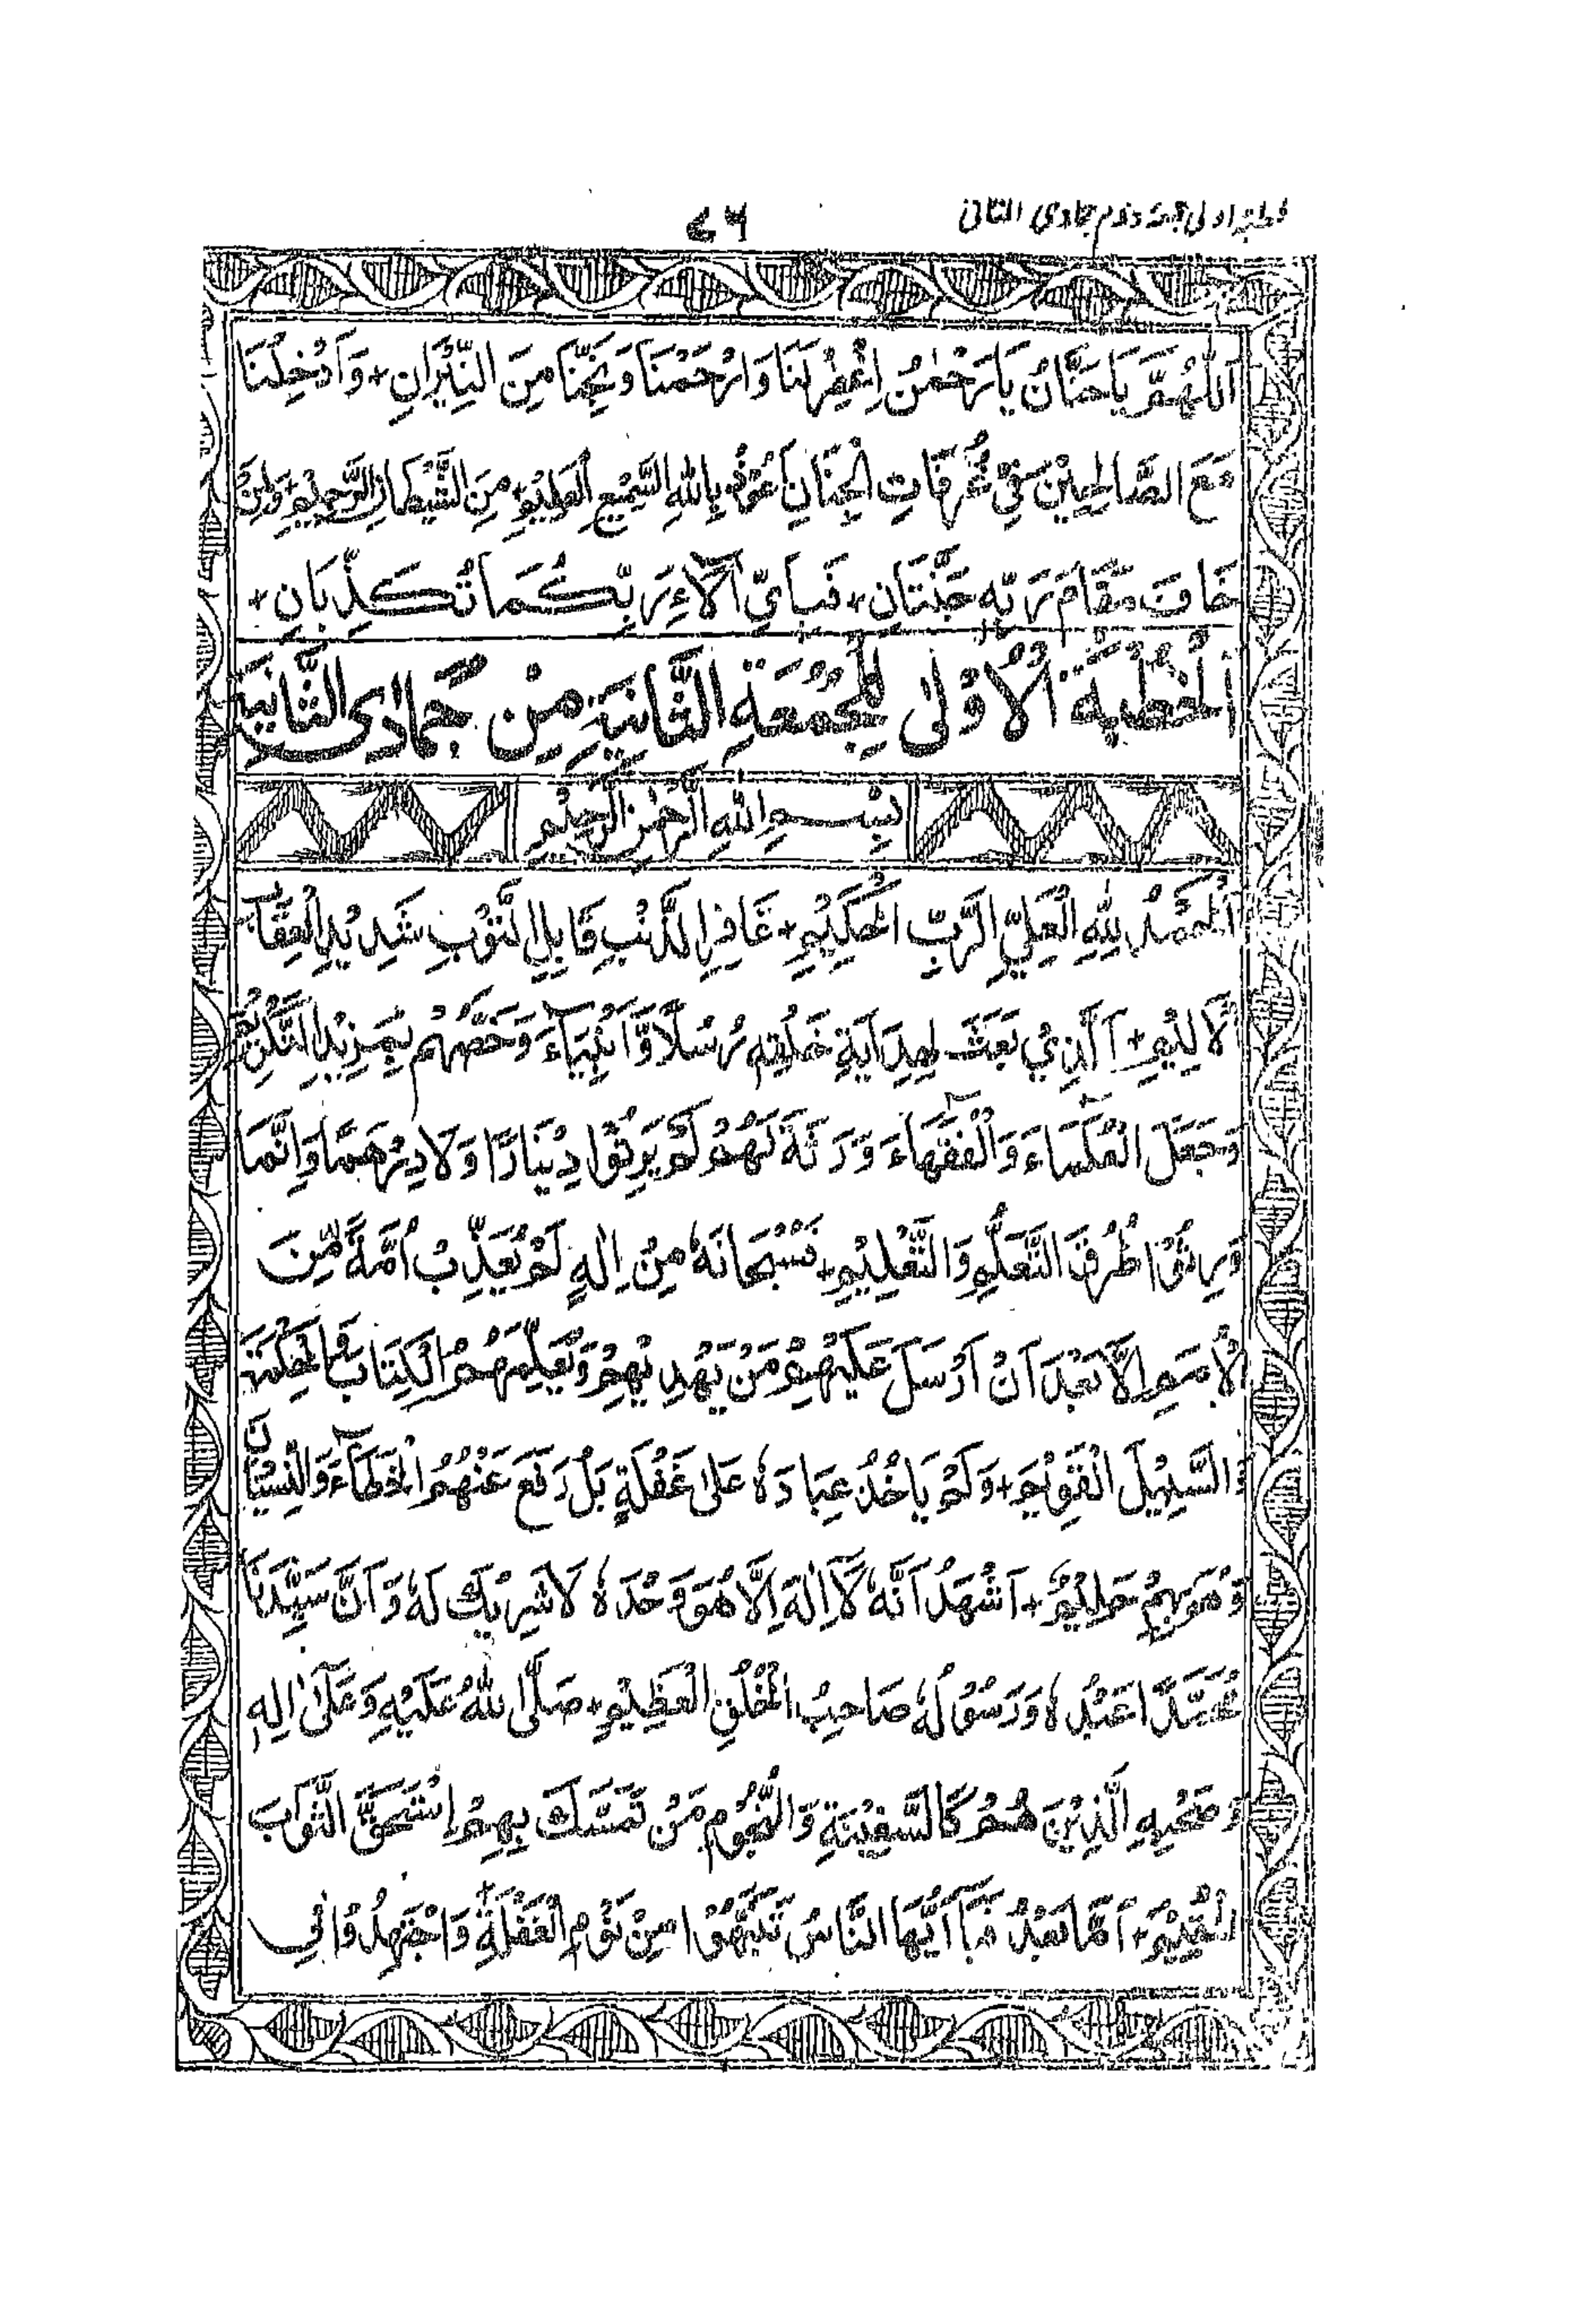 خطبہ اولی جمعہ دوم جمادی الثانی
٧٦
اَللّٰهُمَّ يَا حَنَّانُ يَا رَحْمٰنُ اِغْفِرْ لَنَا وَارْحَمْنَا وَنَجِّنَا مِنَ النِّيْرَانِ + وَاَدْخِلْنَا
مَعَ الصَّالِحِيْنَ فِيْ غُرُفَاتِ الْجِنَانِ اَعُوْذُ بِاللّٰهِ السَّمِيْعِ الْعَلِيْمِ + مِنَ الشَّيْطَانِ الرَّجِيْمِ + وَلِمَنْ
خَافَ مَقَامَ رَبِّهٖ جَنَّتَانِ + فَبِاَيِّ اٰلَآءِ رَبِّكُمَا تُكَذِّبَانِ +
اَلْخُطْبَةُ الْاُوْلٰى لِلْجُمُعَةِ الثَّانِيَةِ مِنْ جُمَادَى الثَّانِيَةِ
بِسْمِ اللّٰهِ الرَّحْمٰنِ الرَّحِيْمِ
اَلْحَمْدُ لِلّٰهِ الْعَلِيِّ الرَّبِّ الْحَكِيْمِ + غَافِرِ الذَّنْبِ قَابِلِ التَّوْبِ شَدِيْدِ الْعِقَابِ
الْاَلِيْمِ + اَلَّذِيْ بَعَثَ لِهِدَايَةِ خَلْقِهٖ رُسُلًا وَّاَنْبِيَآءَ وَخَصَّهُمْ بِمَزِيْدِ التَّكْرِيْمِ
وَجَعَلَ الْعُلَمَآءَ وَالْفُقَهَآءَ وَرَثَةً لَّهُمْ لَمْ يَرِثُوْا دِيْنَارًا وَلَا دِرْهَمًا وَاِنَّمَا
وَرِثُوْا طُرُقَ التَّعَلُّمِ وَالتَّعْلِيْمِ + فَسُبْحَانَهٗ مِنْ اِلٰهٍ لَمْ يُعَذِّبْ اُمَّةً مِّنَ
الْاُمَمِ اِلَّا بَعْدَ اَنْ اَرْسَلَ عَلَيْهِمْ مَنْ يَّهْدِيْهِمْ وَيُعَلِّمُهُمُ الْكِتَابَ وَالْحِكْمَةَ
وَالسَّبِيْلَ الْقَوِيْمَ + وَلَمْ يَاْخُذْ عِبَادَهٗ عَلٰى غَفْلَةٍ بَلْ رَفَعَ عَنْهُمُ الْخَطَآءَ وَالنِّسْيَانَ
وَهُوَ بِهِمْ حَلِيْمٌ + اَشْهَدُ اَنَّهٗ لَآ اِلٰهَ اِلَّا هُوَ وَحْدَهٗ لَا شَرِيْكَ لَهٗ وَاَنَّ سَيِّدَنَا
مُحَمَّدًا عَبْدُهٗ وَرَسُوْلُهٗ صَاحِبُ الْخُلُقِ الْعَظِيْمِ + صَلَّى اللّٰهُ عَلَيْهِ وَعَلٰٓى اٰلِهٖ
وَصَحْبِهِ الَّذِيْنَ هُمْ كَالسَّفِيْنَةِ وَالنُّجُوْمِ مَنْ تَمَسَّكَ بِهِمْ اِسْتَحَقَّ الثَّوَابَ
الْمُقِيْمَ + اَمَّا بَعْدُ فَيَآ اَيُّهَا النَّاسُ تَنَبَّهُوْا مِنْ نَوْمِ الْغَفْلَةِ وَاجْتَهِدُوْا فِي